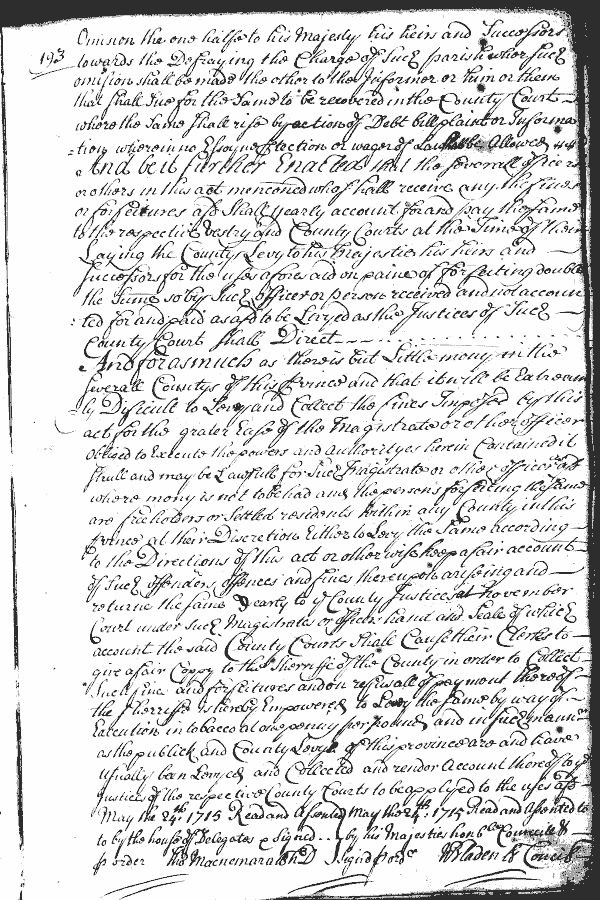 193
Omision the one halfe to his Majesty his heirs and Successors
towards the Defraying the Charge of Such parish wher Such
omision shall be made the other to the Informer or him or them
that shall Sue for the Same to be recovered in the County Court
where the Same shall rise by action of Debt bill plaint or Informa
tion wherein no Essoyne protection or wager of Law shall be Allowed
And be it further Enacted that the severall officers
or others in this act mencioned who shall receive any the fines
or forfeitures afd Shall yearly account for and pay the Same
to the respective Vestry and County Courts at the Time of their
Laying the County Levy to his Majestie his heirs and
Successors for the uses aforesaid on paine of forfeiting double
the Summe so by Such officer or person received and not accoun
ted for and paid as afd to be Levyed as the Justices of Such
County Court shall Direct
And forasmuch as there is but Little mony in the
severall Countys of this Province and that it will be Extream
ly Difficult to Levy and Collect the fines Imposed by this
act for the grater Ease of the Magistrate or other officer
obliged to Execute the powers and authorityes herein Contained it
shall and may be Lawfull for Such Magistrate or other officer afd
where mony is not to be had and the persons forfeiting the Same
are freeholders or Settled residents within any County in this
Province at their Discretion Either to Levy the Same according
to the Directions of this act or otherwise keep a fair account
of Such offenders offences and fines thereupon ariseing and
returne the same Yearly to ye County Justices at November
Court under Such Magistrates or officers hand and Seale of which
account the said County Courts Shall Cause their Clerks to
give a fair Coppy to the Sherriffe of the County in order to Collect
Such fines and forfeitures and on refusall of payment thereof
the Sherriffe is hereby Empowered to Levy the Same by way of
Execution in tobacco at one penny per pound and in such manner
as the publick and County Levys of this province are and have
usually been Levyed and Collected and render Account thereof to ye
Justices of the respective County Courts to be applyed to the uses afd
May the 24th 1715 Read and Assented May the 24th: 1715 Read and Assented to
to by the house of Delegates signed by his Majesties honble Councill &
p order Tho Macnemara Ck D signd p ordr WBladen Ck Council